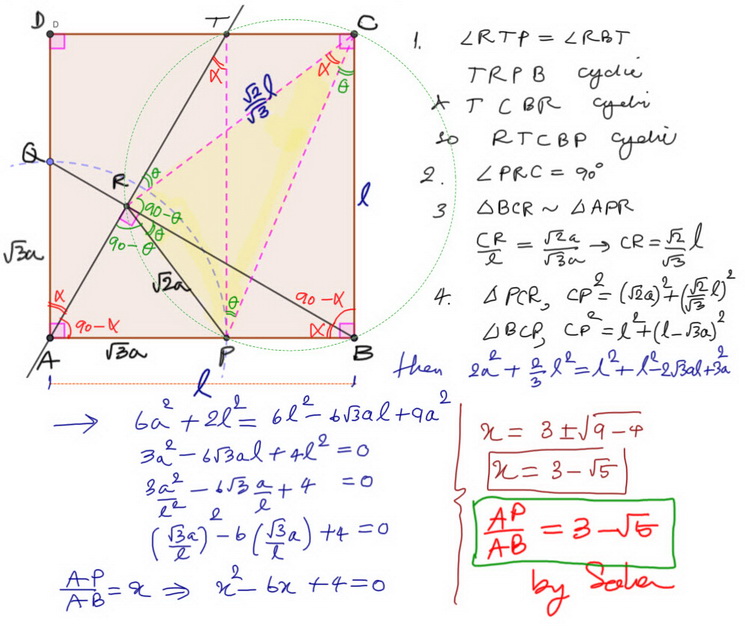 D D T C
α α θ
√2/√3 l
Q R θ
90-θ
90-θ θ
l
√3a
√2a
α θ 90-α
90-α α
A √3a P B
l
1. ∠RTP = ∠RBT
TRPB cyclic
∧ TCBR cyclic
so RTCBP cyclic
2. ∠PRC = 90°
3 △BCR ~ △APR
CR/l = √2a/√3a → CR = √2/√3 l
4. △PCR, CP² = (√2a)² + (√2/√3 l)²
△BCP, CP² = l² + (l-√3a)²
then 2a² + 2/3 l² = l² + l² - 2√3al + 3a²
→ 6a² + 2l² = 6l² - 6√3al + 9a²
3a² - 6√3al + 4l² = 0
3a²/l² - 6√3 a/l + 4 = 0
(√3a/l)² - 6(√3a/l) + 4 = 0
AP/AB = x ⇒ x² - 6x + 4 = 0
x = 3 ± √9-4
x = 3 - √5
AP/AB = 3 - √5
by